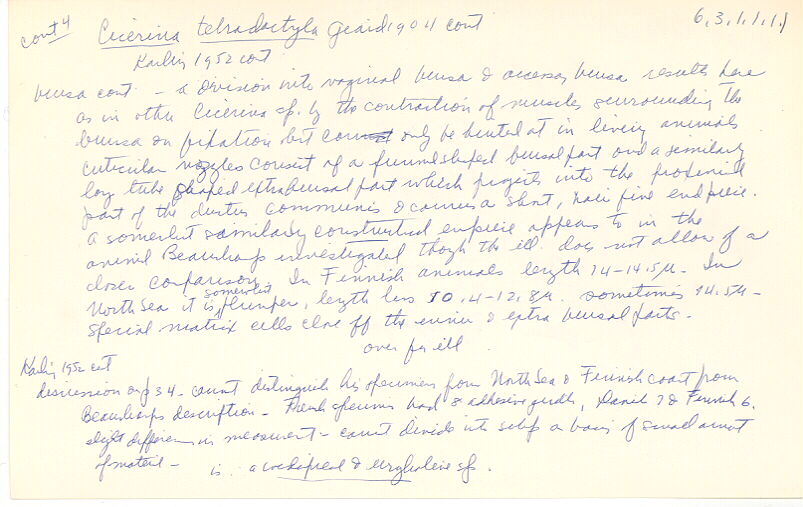 cont 4 Cicerina tetradactyla Giard 1904 cont 6,3,1,1,1,1
Karling 1952 cont
bursa cont - a division into vaginal bursa & accessory bursa results here
as in other Cicerina sp. by the contraction of muscles surrounding the
bursa on fixation but can only be hinted at in living animals
cuticular nozzles consist of a funnel shaped bursal part and a similarly
long tube shaped extrabursal part which projects into the proximal
part of the ductus communis & carries a short, hair fine end piece.
a somewhat similarly constructed enpiece appears to in the
animal Beauchamp investigated though the ill. does not allow of a
closer comparison. In Finnish animals length 14-14.5µ. In
North Sea it is somewhat plumper, length less 10.4-12.8µ. sometimes 14.5µ -
special matrix cells close off the inner & extra bursal parts.
over for ill
Karling 1952 cont
discussion on p 34 - cannot distinguish his specimens from North Sea & Finnish coast from
Beauchamps description - French specimens had 8 adhesive girdles, Danish 7 & Finnish 6.
slight differences in measurement - cannot divide into subsp on basis of small amount
of material - is a widespread & euryhaline sp.